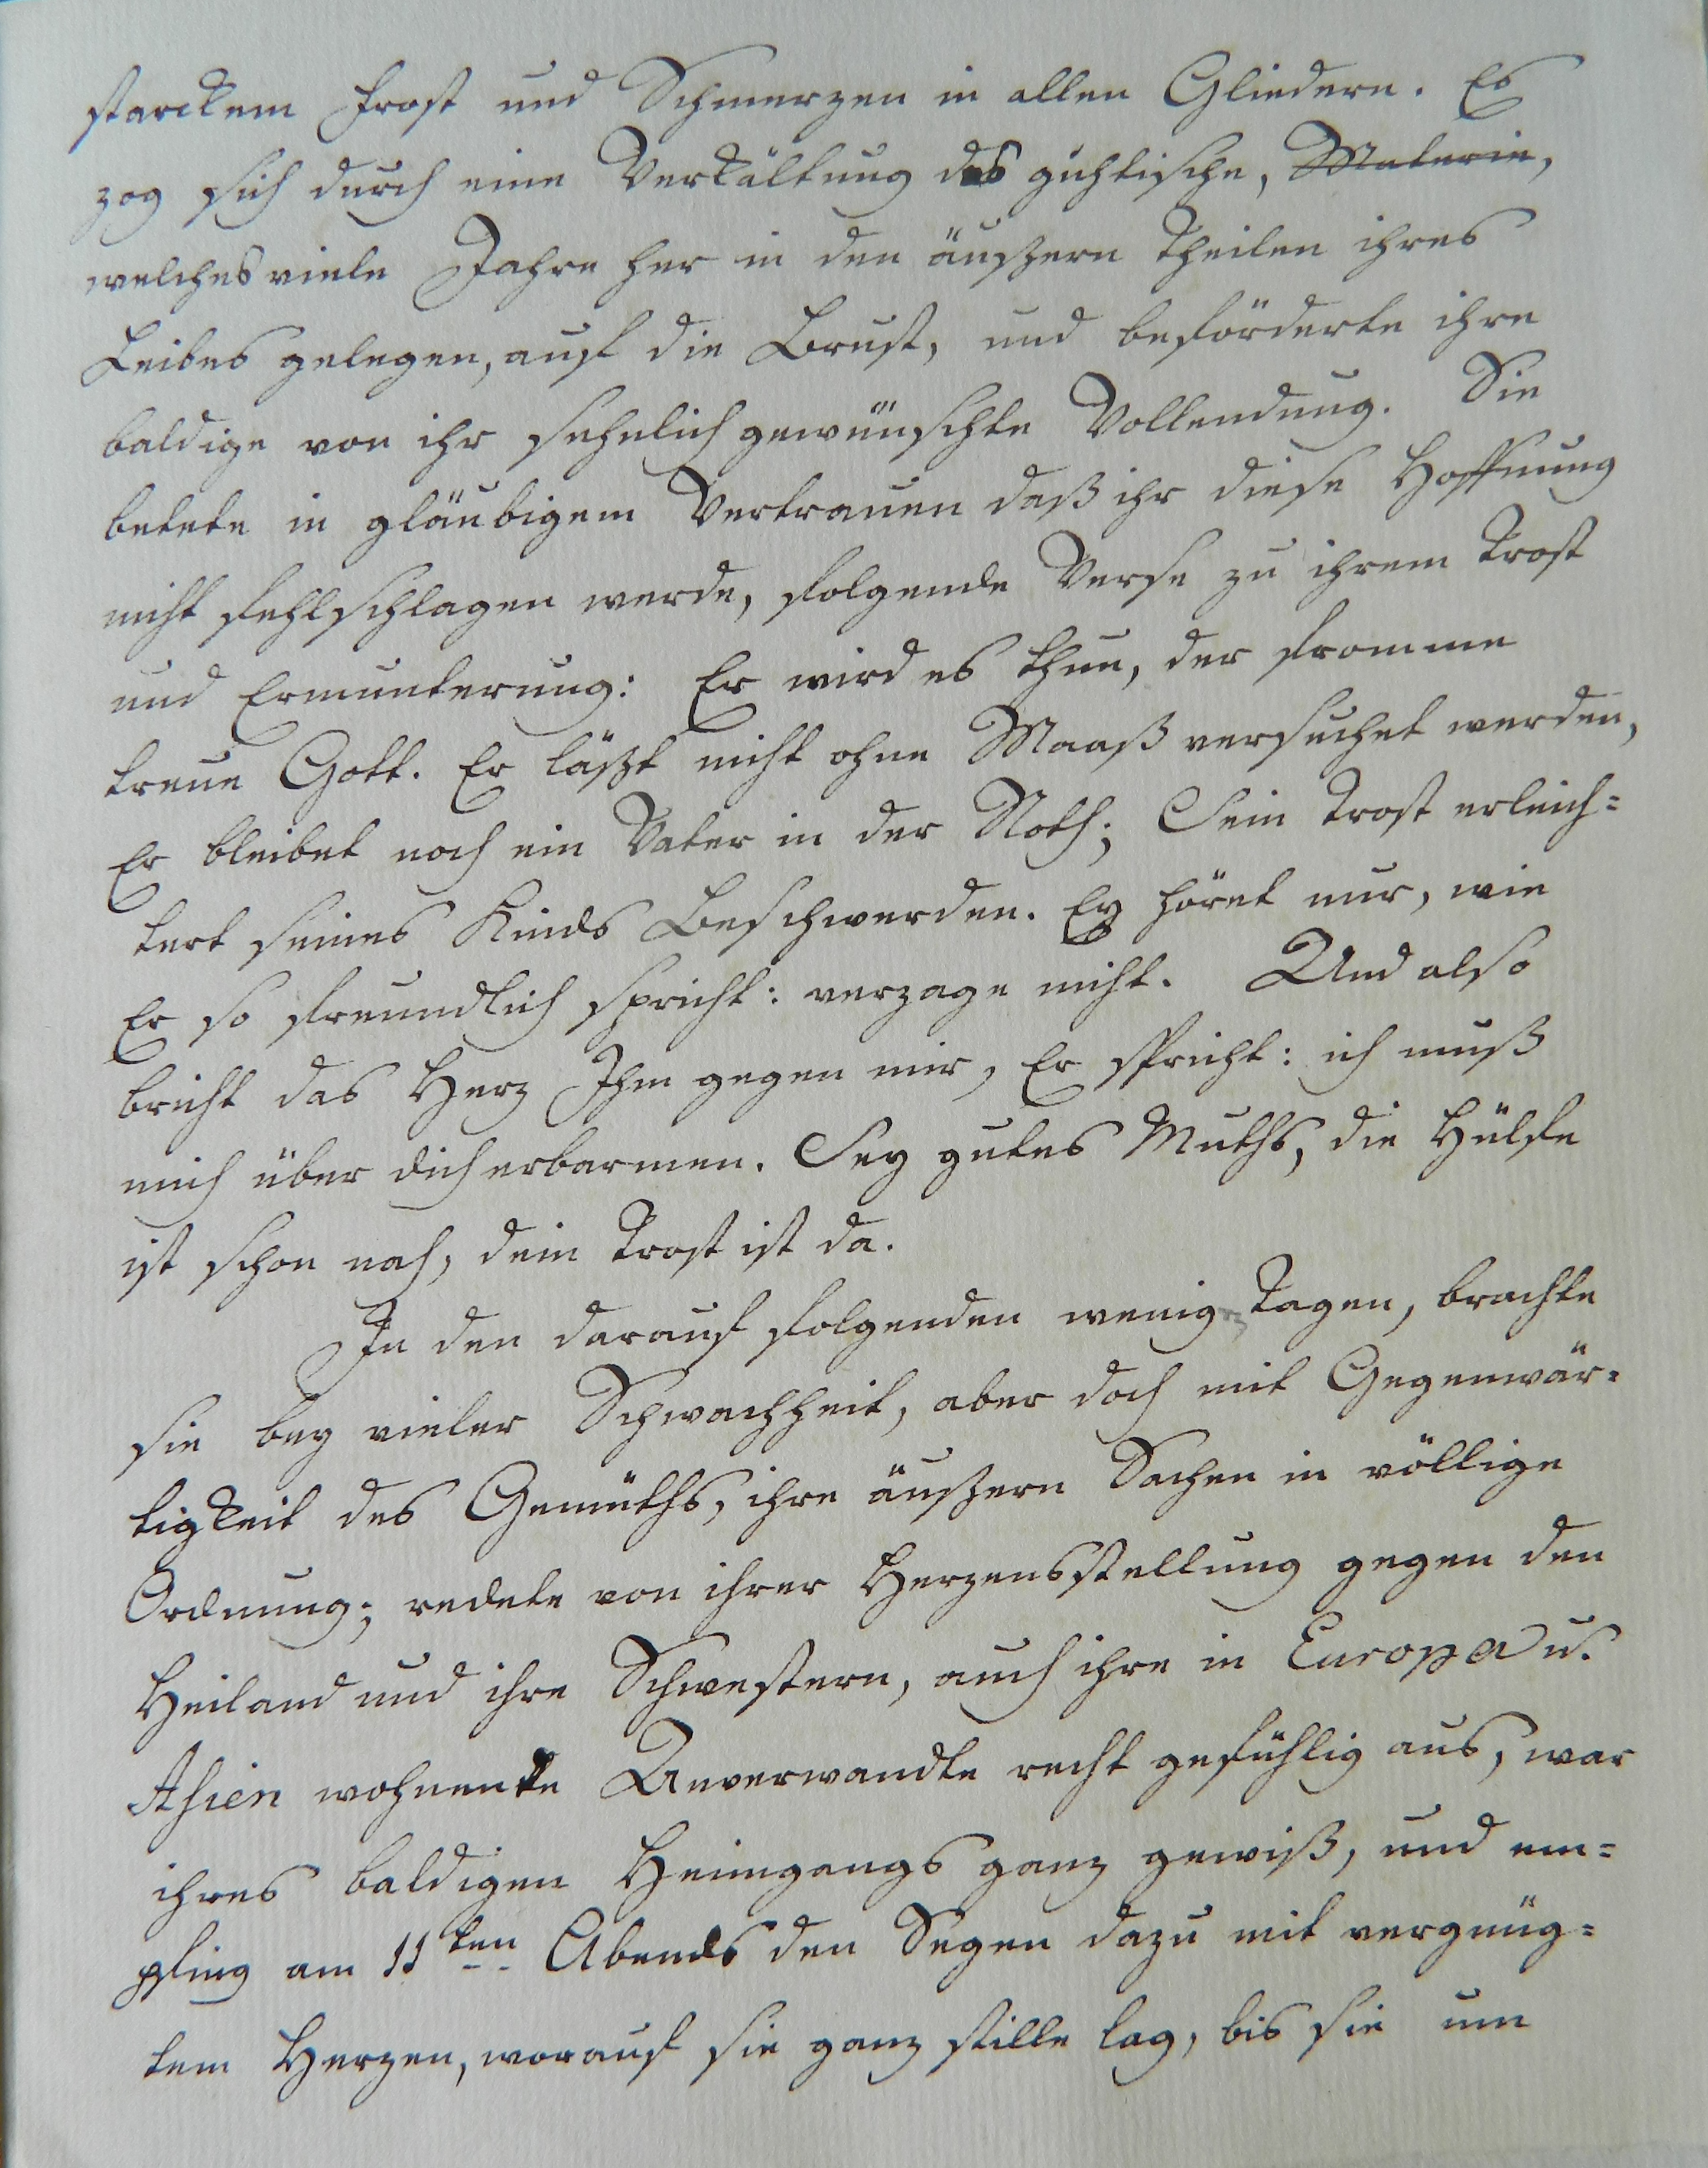 starckem Frost und Schmerzen in allen Gliedern. Es
zog sich durch eine Verkältung das gichtische, Materie,
welches viele Jahre her in den äußern Theilen ihres
Leibes gelegen, auf die Brust, und beförderte ihre
baldige von ihr sehnlich gewünschte Vollendung. Sie
betete in gläubigem Vertrauen daß ihr diese Hoffnung
nicht fehlschlagen werde, folgende Verse zu ihrem Trost
und Ermunterung: Er wird es thun, der fromme
treue Gott. Er läßt nicht ohne Maaß versuchet werden,
Er bleibet noch ein Vater in der Noth; Sein Trost erleich=
tert seines Kinds Beschwerden. Ey höret nur, wie
Er so freundlich spricht: verzage nicht. Und also
bricht das Herz Ihm gegen mir, Er spricht: ich muß
mich über dich erbarmen. Sey gutes Muths, die Hülfe
ist schon nah, dein Trost ist da.
In den darauf folgenden wenig Tagen, brachte
sie bey vieler Schwachheit, aber doch mit Gegenwär=
tigkeit des Gemüths, ihre äußern Sachen in völlige
Ordnung; redete von ihrer Herzensstellung gegen den
Heiland und ihre Schwestern, auch ihre in Europa u.
Asien wohnende Anverwandte recht gefühlig aus, war
ihres baldigen Heimgangs ganz gewiß, und em=
pfing am 11ten Abends den Segen dazu mit vergnüg=
tem Herzen, worauf sie ganz stille lag, bis sie um